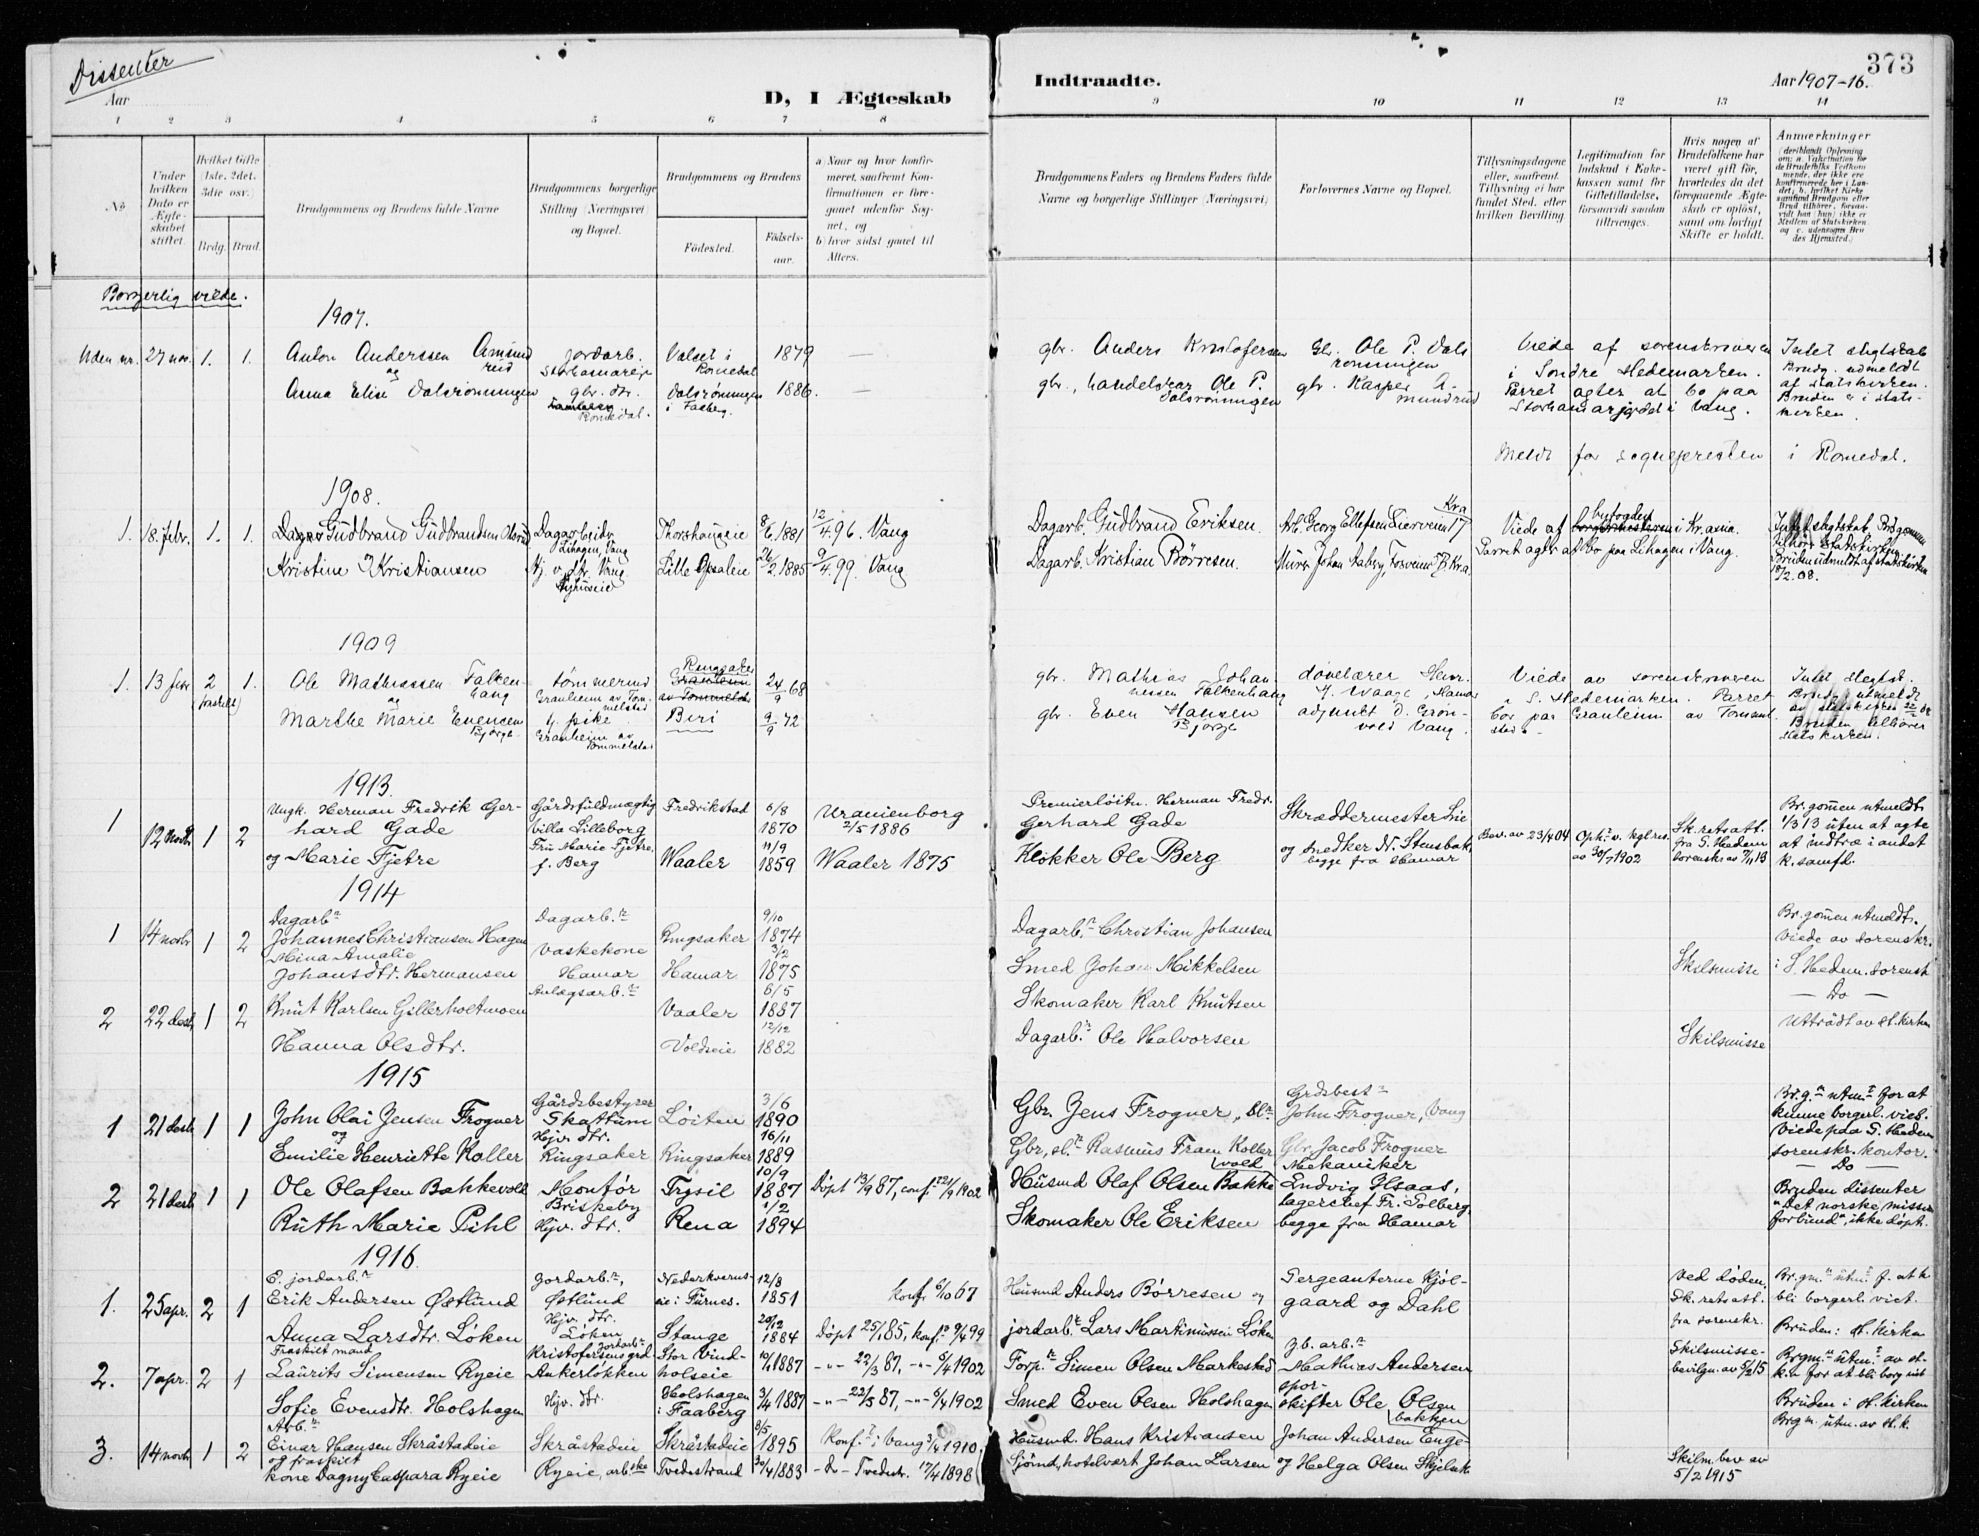 Dissenter
Aar
D, I Ægteskab
1 2 3 4 5 6 7 8
No
Under hvilken Dato er Ægteskabet stiftet.
Hvilket Gifte (1ste, 2det, 3die osv.)
Brdg. Brud.
Brudgommens og Brudens fulde Navne
Brudgommens borgerlige Stilling (Næringsvei) og Bopæl.
Brudgommens og Brudens
Fødested.
Fødselsaar.
a) Naar og hvor konfirmeret, saafremt Konfirmationen er foregaaet udenfor Sognet, og
b) hvor sidst gaaet til Alters.
Indtraadte.
373
Aar 1907-16.
9 10 11 12 13 14
Brudgommens Faders og Brudens Faders fulde Navne og borgerlige Stillinger (Næringsvei)
Forlovernes Navne og Bopæl.
Tillysningsdagene eller, saafremt Tillysning ei har fundet Sted, efter hvilken Bevilling.
Legitimation for Indskud i Enkekassen samt for Giftetilladelse, forsaavidt saadan tiltrænges.
Hvis nogen af Brudefolkene har været gift før, hvorledes da det foregaaende Ægteskab er opløst, samt om lovligt Skifte er holdt.
Anmærkninger
Borgerlig viede.
1907.
Uden nr. 27 nov. 1. 1.
Anton Anderssen Amundrud
og
Anna Elise Dalsrønningen
jordarb.
Storhamareje
gbr. dtr.
Romedal.
Valset i Romedal 1879 —
Dalsrønningen i Faaberg. 1886. —
gbr. Anders Kristofersen
gbr., handelskar Ole P. Dalsrønningen
Gbr. Ole P. Dalsrønningen
gbr. Kasper Amundrud
Viede af sorenskriveren
i Søndre Hedemarken.
Parret agter at bo paa
Storhamarjordet i Vang.
Intet slegtskab
Brudg. udmeldt
af statskirken.
Bruden er i statskirken.
Meldt for sognepresten i Romedal.
1908.
1. 18. febr. 1. 1.
Gudbrand Gudbrandsen
Kristine Kristiansen
Dagarbeider
Lihagen, Vang
Hj. v. dtr. Vang
Thorshaugeie 8/6 1881 12/4 96. Vang
Lille Opsaleie 26/2 1885 9/4 99. Vang
Dagarb. Gudbrand Eriksen.
Dagarb. Kristian Børresen.
Arb. Georg Ellefsen 17 Kra
Murer Johan Aaberg, Kr.a
Viede af byfogden i Kr.ania.
Parret agter at bo paa Lihagen i Vang.
Intet slegtskab. Brdgommen
tilhører Statskirken.
Bruden udmeldt af statskirken
18/2.08.
1909
1. 13 febr 2 1.
(fraskilt)
Ole Mathiassen Falkenhaug
og
Marthe Marie Evensen
Bjørge
tømmermd
Granheim av Tommelstad
g. pike
Granheim av Tommelstad
Ringsaker
24/9 68
Biri 9/9 72
gbr. Mathias Johannessen Falkenhaug
gbr. Even Hansen Bjørge
døvelærer Henr. J. Waage, Hamar
adjunkt O. Grønvold Vang.
Viede av sorenskriveren
i S. Hedemarken. Parret
bor paa Granheim av Tommelstad.
Intet slegtsk.
Brudg. utmeldt
av statskirken
Bruden tilhører
statskirken.
1913.
1 12 novbr 1 2
Ungk. Herman Fredrik Gerhard Gade
og Marie Fjetre
Gårdsfuldmægtig
Villa Lilleborg
Fru Marie Fjetre
f. Berg
Fredrikstad 6/8 1870 Uranienborg 2/5 1886
Waaler 11/9 1859 Waaler 1875
Premierløitn. Herman Fredr. Gerhard Gade
Klokker Ole Berg
Skræddermester Lie
og Snedker N. Stensbak
begge fra Hamar
Bev. av 23/4 04
Oph. v. kgl. res. av 30/7 1902
Sk. retsatt. fra S. Hedem sorenskr. av 7/11 13
Br.gommen utmeldt
1/3 13 uten at agte
at indtræ i andet
k. samfd.
1914
1 14 novbr 1 2
Dagarb.r
Johannes Christiansen Hagen
Mina Amalie
Johansdtr. Hermansen
Dagarb.r
Vaskekone
Hamar
Ringsaker 9/10 1874
Hamar 3/2 1875
Dagarb.r Christian Johansen
Smed Johan Mikkelsen
Skilsmisse
Br.gommen utmeldt.
Viede av sorenskr.
i S. Hedem. sorensk
2 22 desbr 1 2
Knut Karlsen Gillerholtmoen
Hanna Olsdtr.
Anlægsarb.r
Vaaler 6/5 1887
Voldseie 12/12 1882
Skomaker Karl Knutsen
Dagarb.r Ole Halvorsen
Skilsmisse
— Do —
Uttrådt av st.kirken
1915
1 21 desbr 1 1
John Olai Jensen Frogner
og
Emilie Henriette Koller
Gårdsbestyrer
Skattum
Hjv. dtr.
Ringsaker
Løiten 3/6 1890
Ringsaker 16/11 1889
Gbr. Jens Frogner,
Gbr, sl.r Rasmus Fram Koller
Grdsbest.r
John Frogner, Vang
Gbr. Jacob Frogner
Br.g.n utm.t for at
kunne borgerl. vies.
Viede paa S. Hedem
sorenskr. kontor.
2 21 desbr 1 1
Ole Olafsen Bakkevold
Ruth Marie Pihl
Montør
Briskeby
Hjv. dtr.
Trysil 10/9 1887 Døpt 13/9 87, conf.t 22/9 1902
Rena 1/2 1894
Husmd Olaf Olsen Bakkevold
Skomaker Ole Eriksen
Mekaniker
Ludvig Glsaas,
lagerchef Fr. Solberg
begge fra Hamar
— Do —
Bruden dissenter
"Det norske missionsforbund", ikke døpt.
1916.
1. 25 apr. 2 1
E. jordarb.r
Erik Andersen Østlund
Anna Larsdtr. Løken
Jordarb.r,
Østlund
Hjv. dtr.
Løken
Nederkvernseie i Furnes. 12/8 1851 Konf. 6/10 67
Stange 20/12 1884 Døpt 25/1 85, konf.t 9/4 99
Husmd Anders Børresen og
jordarb.r Lars Martinussen Løken
Sergeanterne Kjølgaard og Dahl
Ved døden,
Sk. retsatt.
fra sorenskr.
Br.gm.n utm.t f. at k
bli borgerl. viet.
Bruden: st. kirken
2. 7 apr. 2 1
Fraskilt mand
Laurits Simensen Ryeie
Sofie Evensdtr. Holshagen
Jordarb.r
Kristofersens grd.
Ankerløkken
Hjv. dtr.
Stor Vindholseie 10/1 1887 -"- 22/3 87, -"- 6/4 1902
Holshagen i Faaberg 3/4 1887 -"- 22/5 87, -"- 6/4 1902
Torp.r Simen Olsen Markestad
Smed Even Olsen Holshagen
Jb. arb.r
Mathias Andersen
sporskifter Ole Olsen bakken
Skilsmissebevilgn. av 5/2 15
Brgm.n utm.t av st.k. for at bli borg. viet
Bruden i st. kirken
3. 14 novbr 1 2
Arb.r
Einar Hansen Skråstadeie
og fraskilt
kone Dagny Caspara Ryeie
Skråstadeie
Ryeie, arb.ske
Skråstadeie 8/5 1895 Konf.t i Vang 3/4 1910.
Tvedestrand 30/4 1883 -do- Tvedestr. 17/4 1898
Husmd. Hans Kristiansen
Sjømd, hotelvært Johan Larsen
Johan Andersen Enge
og Helga Olsen
Skilsm. bev. av
5/2 1915
Brgm. utm. av st.k.